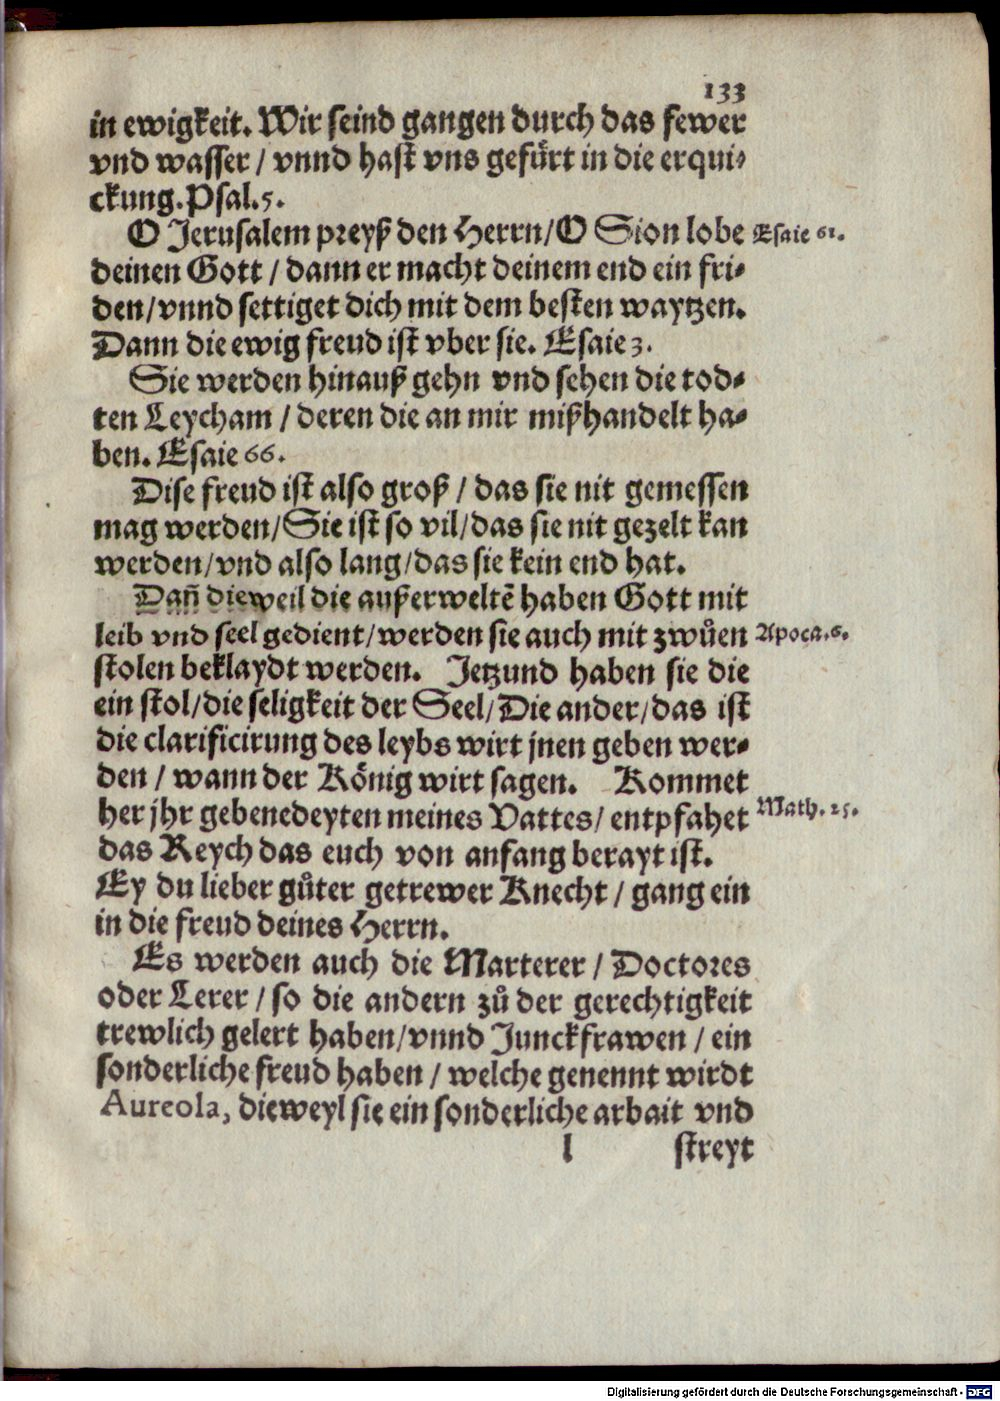 133
in ewigkeit. Wir seind gangen durch das fewer
vnd wasser / vnnd hast vns gefürt in die erqui-
ckung. Psal. 5.
O Jerusalem preyß den Herrn/ O Sion lobe
Esaie 61.
deinen Gott / dann er macht deinem end ein fri-
den/ vnnd settiget dich mit dem besten waytzen.
Dann die ewig freud ist vber sie. Esaie 3.
Sie werden hinauß gehn vnd sehen die tod-
ten Leycham / deren die an mir mißhandelt ha-
ben. Esaie 66.
Dise freud ist also groß / das sie nit gemessen
mag werden/ Sie ist so vil/ das sie nit gezelt kan
werden/ vnd also lang/ das sie kein end hat.
Dañ dieweil die außerweltē haben Gott mit
leib vnd seel gedient/ werden sie auch mit zwůen
Apoca. 6.
stolen beklaydt werden. Jetzund haben sie die
ein stol/ die seligkeit der Seel/ Die ander/ das ist
die clarificirung des leybs wirt jnen geben wer-
den / wann der König wirt sagen. Kommet
her jhr gebenedeyten meines Vattes/ entpfahet
Math. 25.
das Reych das euch von anfang berayt ist.
Ey du lieber gůter getrewer Knecht / gang ein
in die freud deines Herrn.
Es werden auch die Marterer / Doctores
oder Lerer / so die andern zů der gerechtigkeit
trewlich gelert haben/ vnnd Junckfrawen / ein
sonderliche freud haben / welche genennt wirdt
Aureola, dieweyl sie ein sonderliche arbait vnd
l streyt
Digitalisierung gefördert durch die Deutsche Forschungsgemeinschaft - DFG